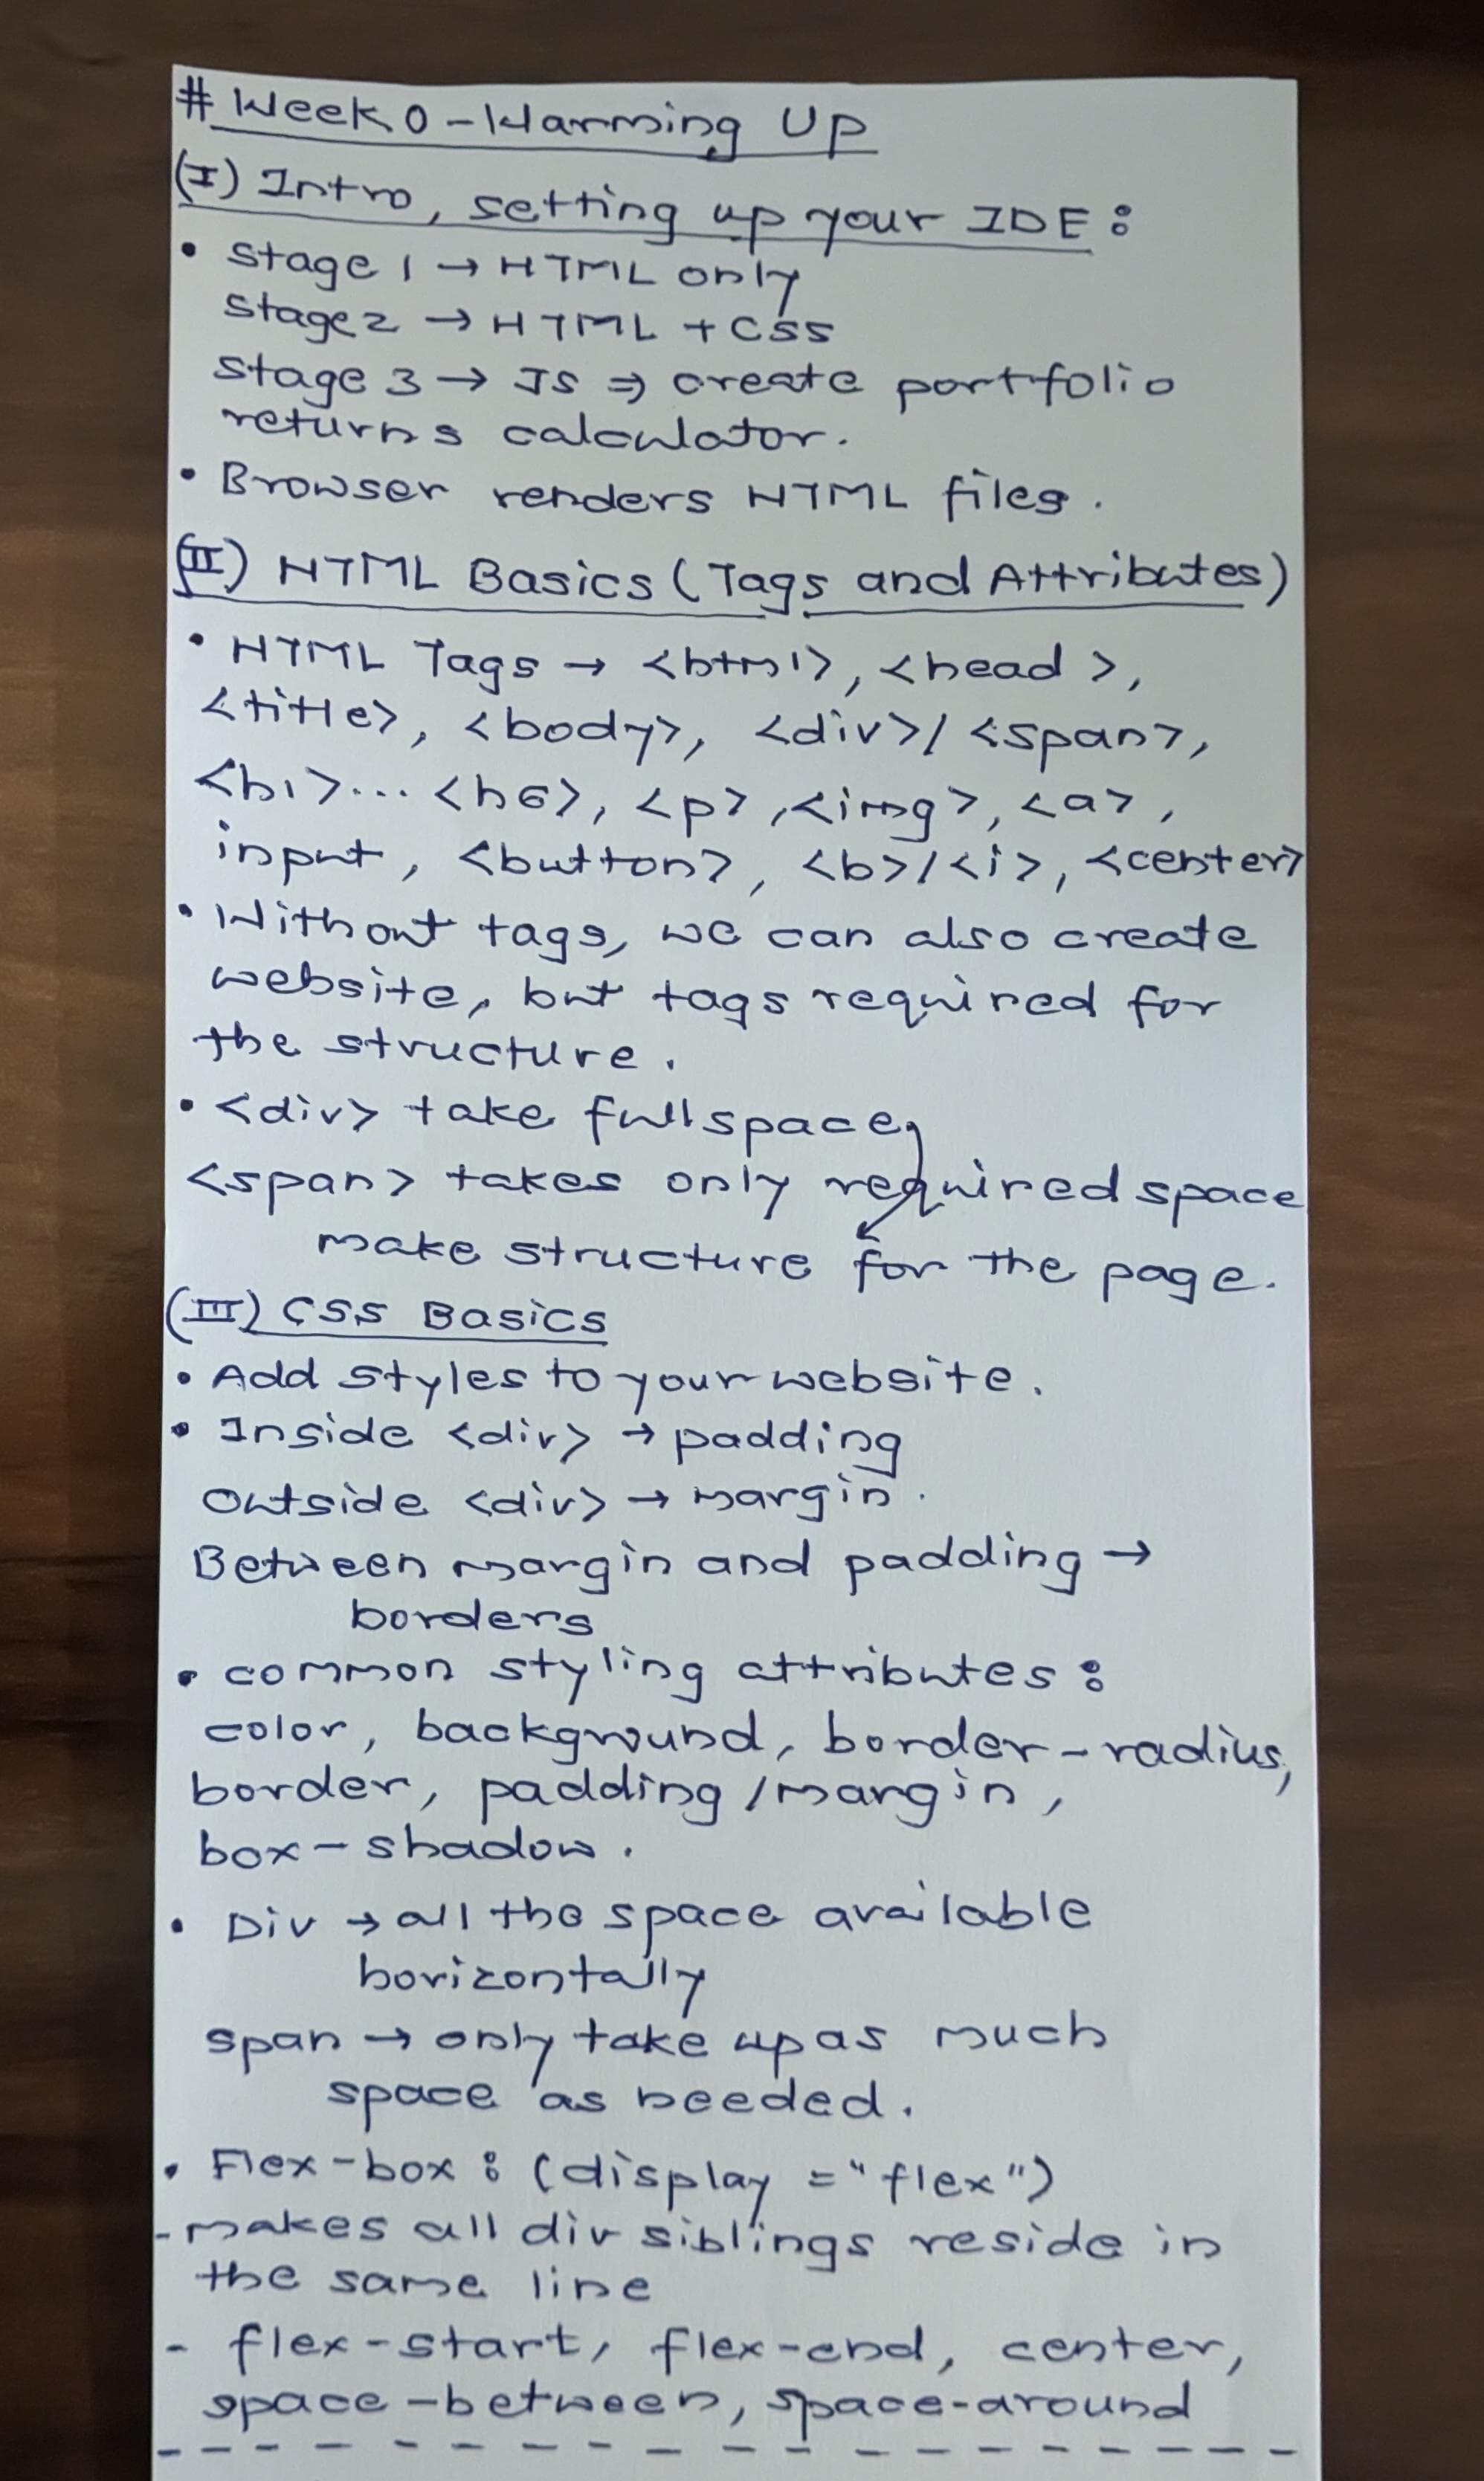 # Week 0 - Warming Up
(I) Intro, setting up your IDE :
• Stage 1 → HTML only
Stage 2 → HTML + CSS
Stage 3 → JS ⇒ create portfolio
returns calculator.
• Browser renders HTML files.
(II) HTML Basics (Tags and Attributes)
• HTML Tags → <html>, <head>,
<title>, <body>, <div>/<span>,
<h1>...<h6>, <p>, <img>, <a>,
input, <button>, <b>/<i>, <center>
• Without tags, we can also create
website, but tags required for
the structure.
• <div> take full space,
<span> takes only required space
make structure for the page.
(III) CSS Basics
• Add styles to your website.
• Inside <div> → padding
Outside <div> → margin.
Between margin and padding →
borders
• common styling attributes :
color, background, border-radius,
border, padding/margin,
box-shadow.
• Div → all the space available
horizontally
span → only take up as much
space as needed.
• Flex-box : (display = "flex")
- makes all div siblings reside in
the same line
- flex-start, flex-end, center,
space-between, space-around